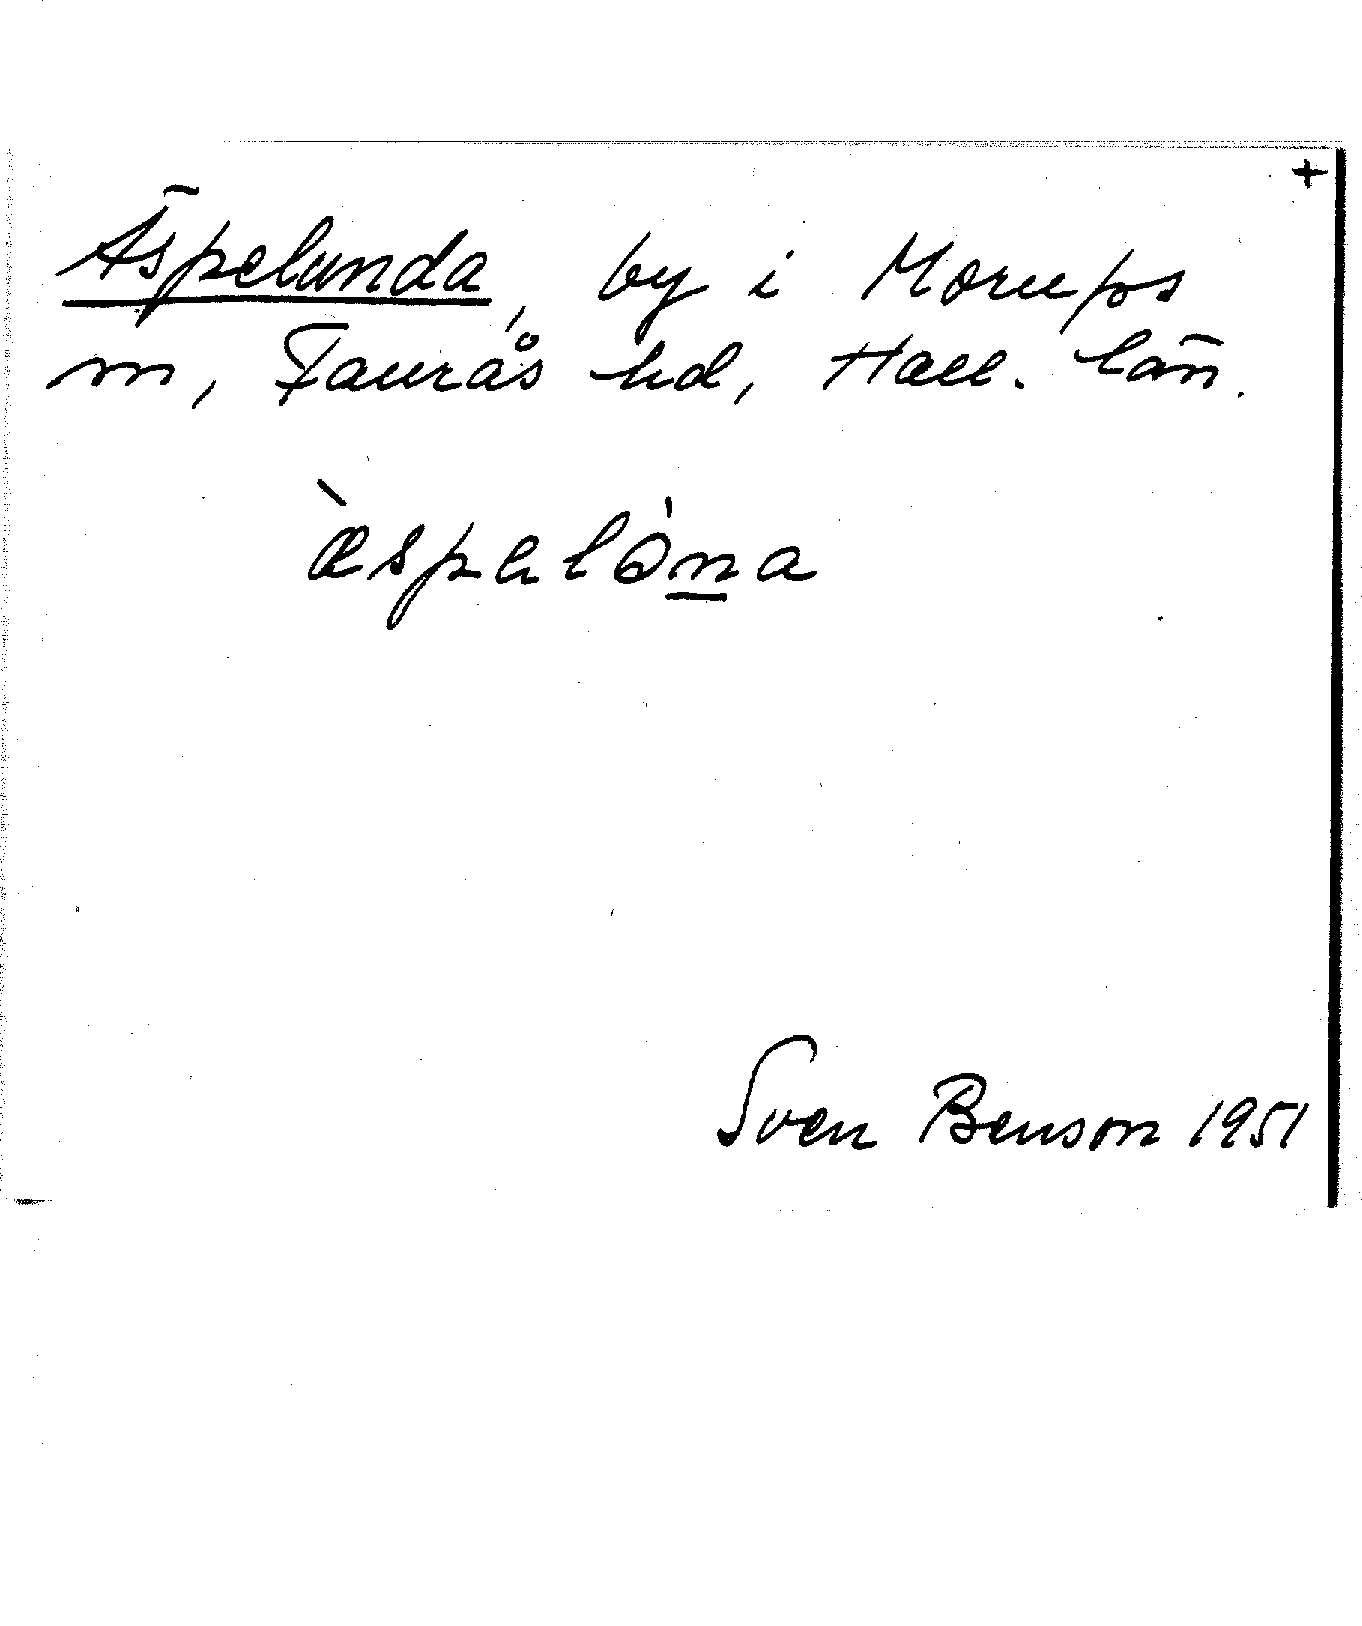 +
Äspelunda, by i Morups
sn, Faurås hd, Hall. län.
æ̀spəlóna
Sven Benson 1951